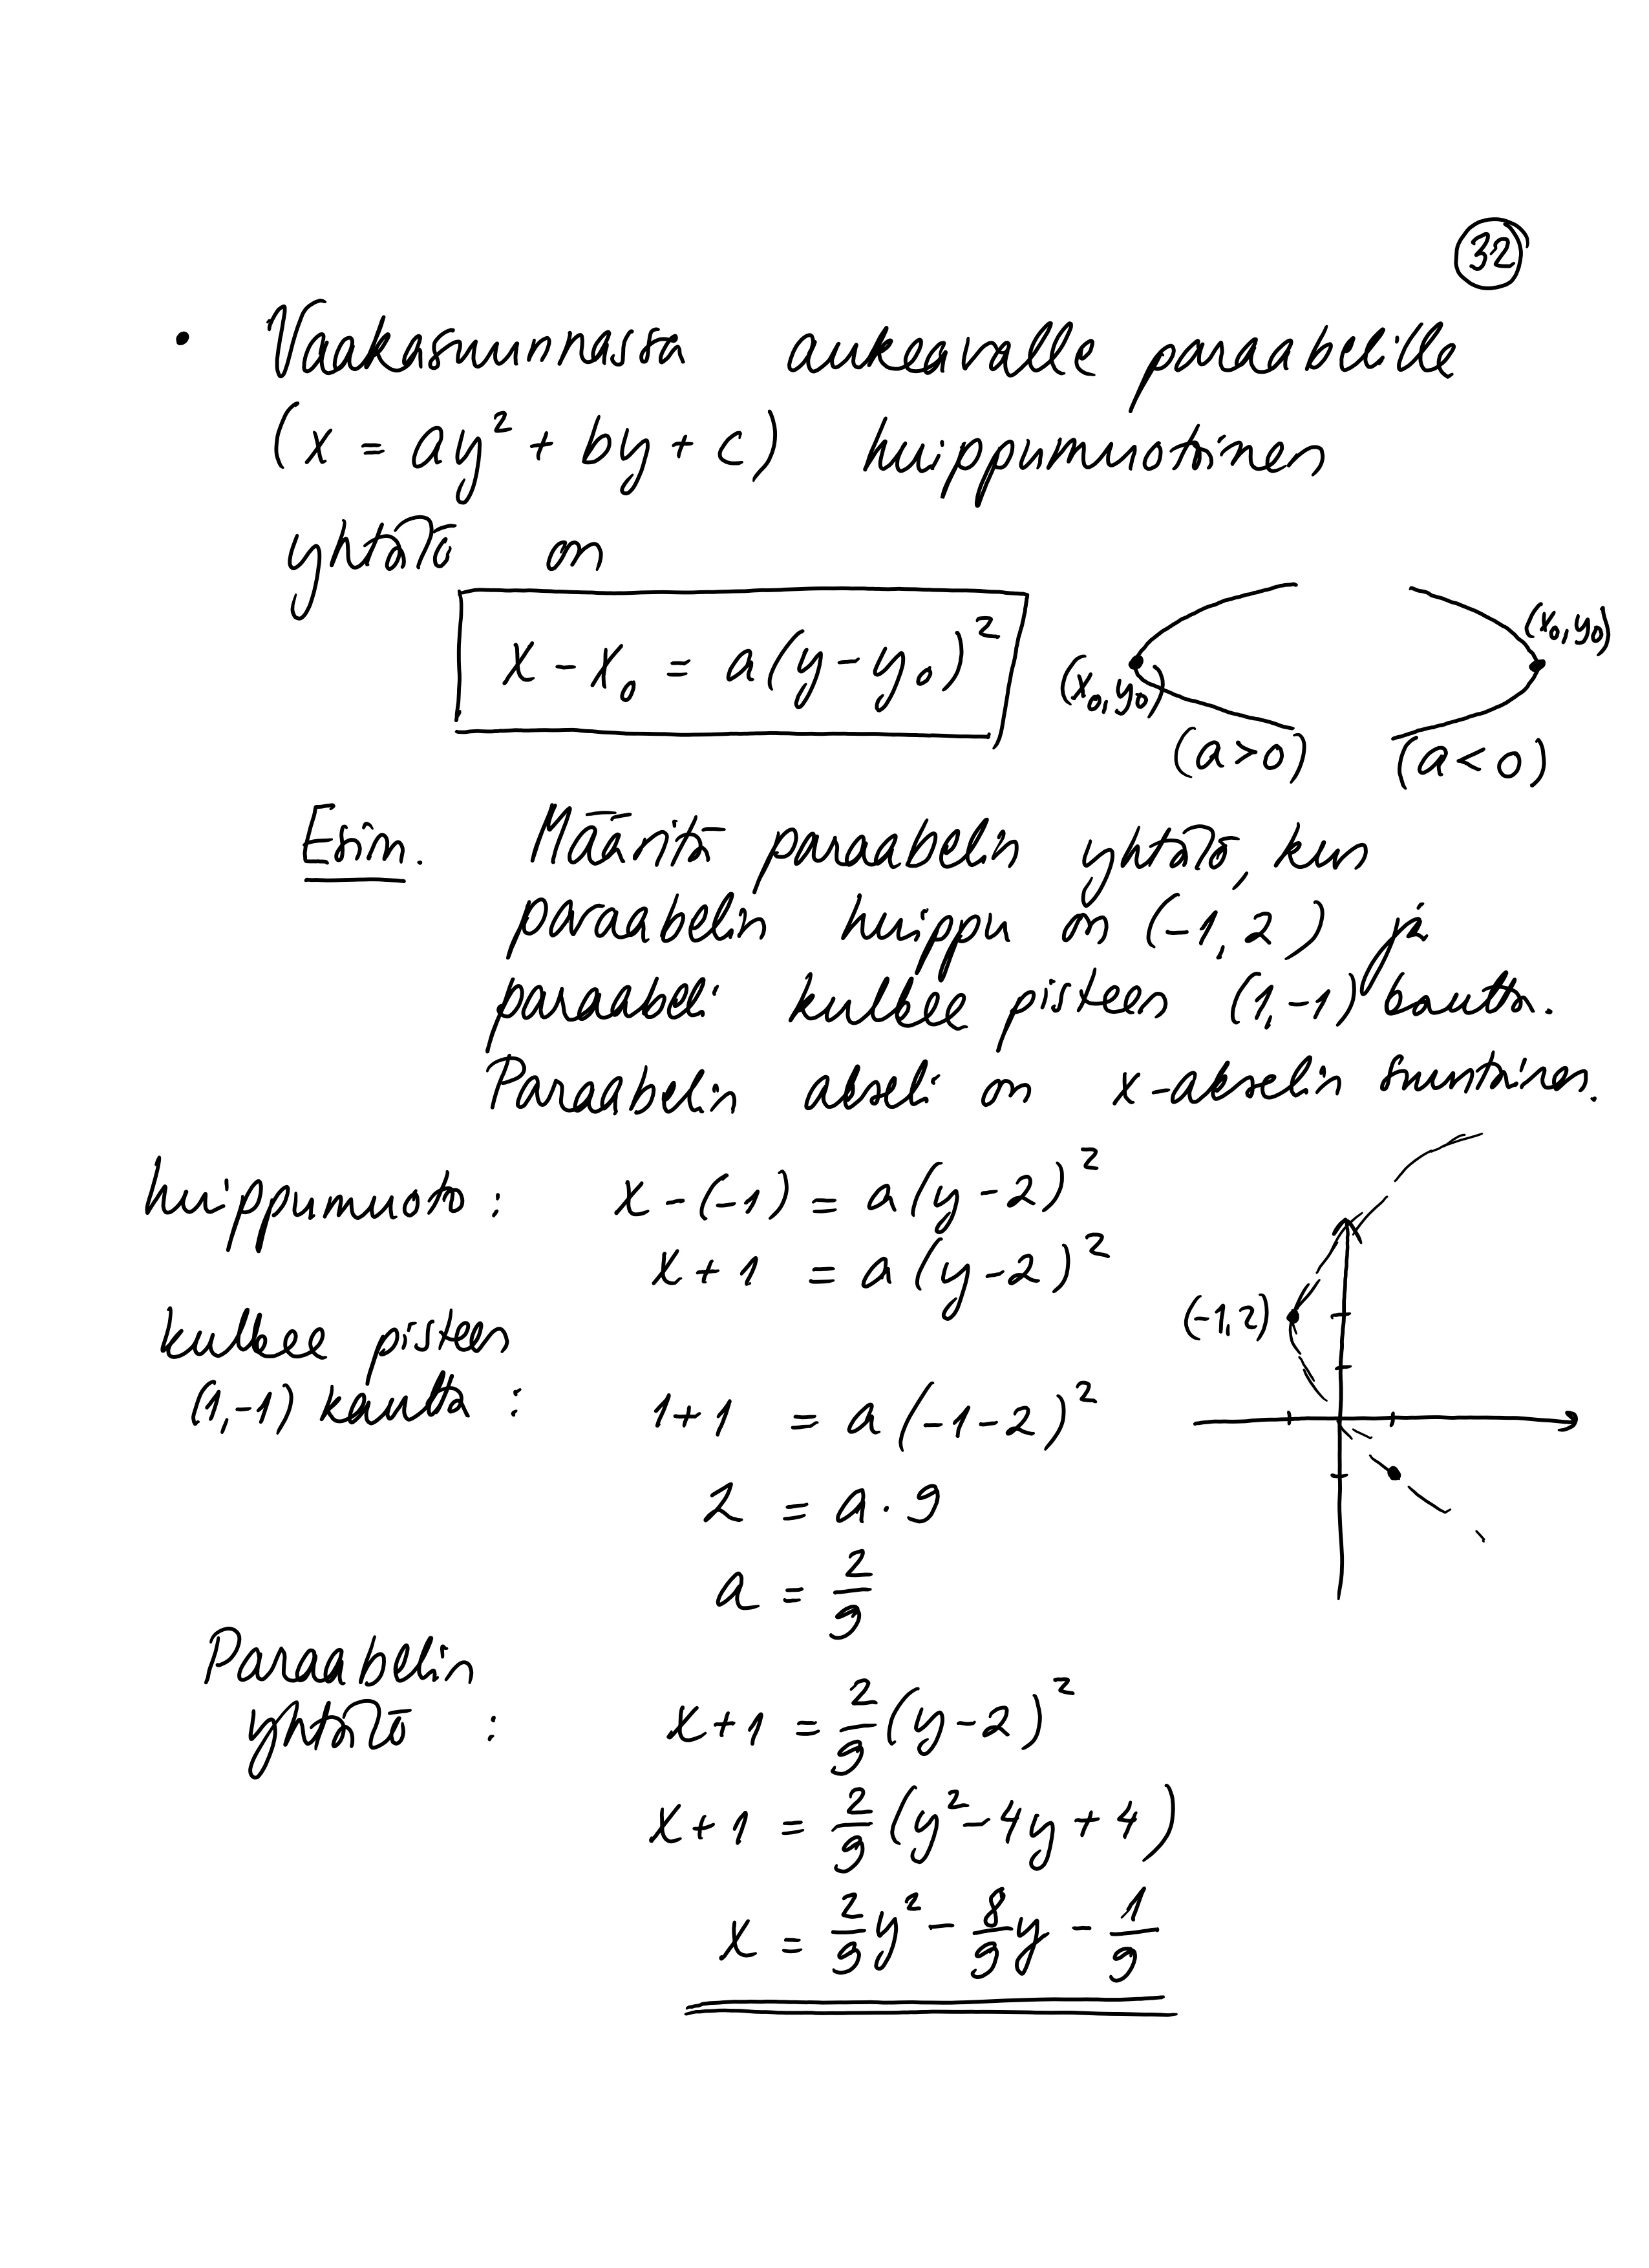 32
• Vaakasuunnassa aukeavalle paraabelille
(x = ay² + by + c) huippumuotoinen
yhtälö on
x - x₀ = a(y - y₀)²
(x₀, y₀)
(x₀, y₀)
(a > 0) (a < 0)
Esim. Määritä paraabelin yhtälö, kun
paraabelin huippu on (-1, 2) ja
paraabeli kulkee pisteen (1, -1) kautta.
Paraabelin akseli on x-akselin suuntainen.
huippumuoto: x - (-1) = a(y - 2)²
x + 1 = a(y - 2)²
(-1, 2)
kulkee pisteen
(1, -1) kautta: 1+1 = a(-1-2)²
2 = a · 9
a = 2/9
Paraabelin
yhtälö: x+1 = 2/9 (y-2)²
x+1 = 2/9 (y² - 4y + 4)
x = 2/9 y² - 8/9 y - 1/9